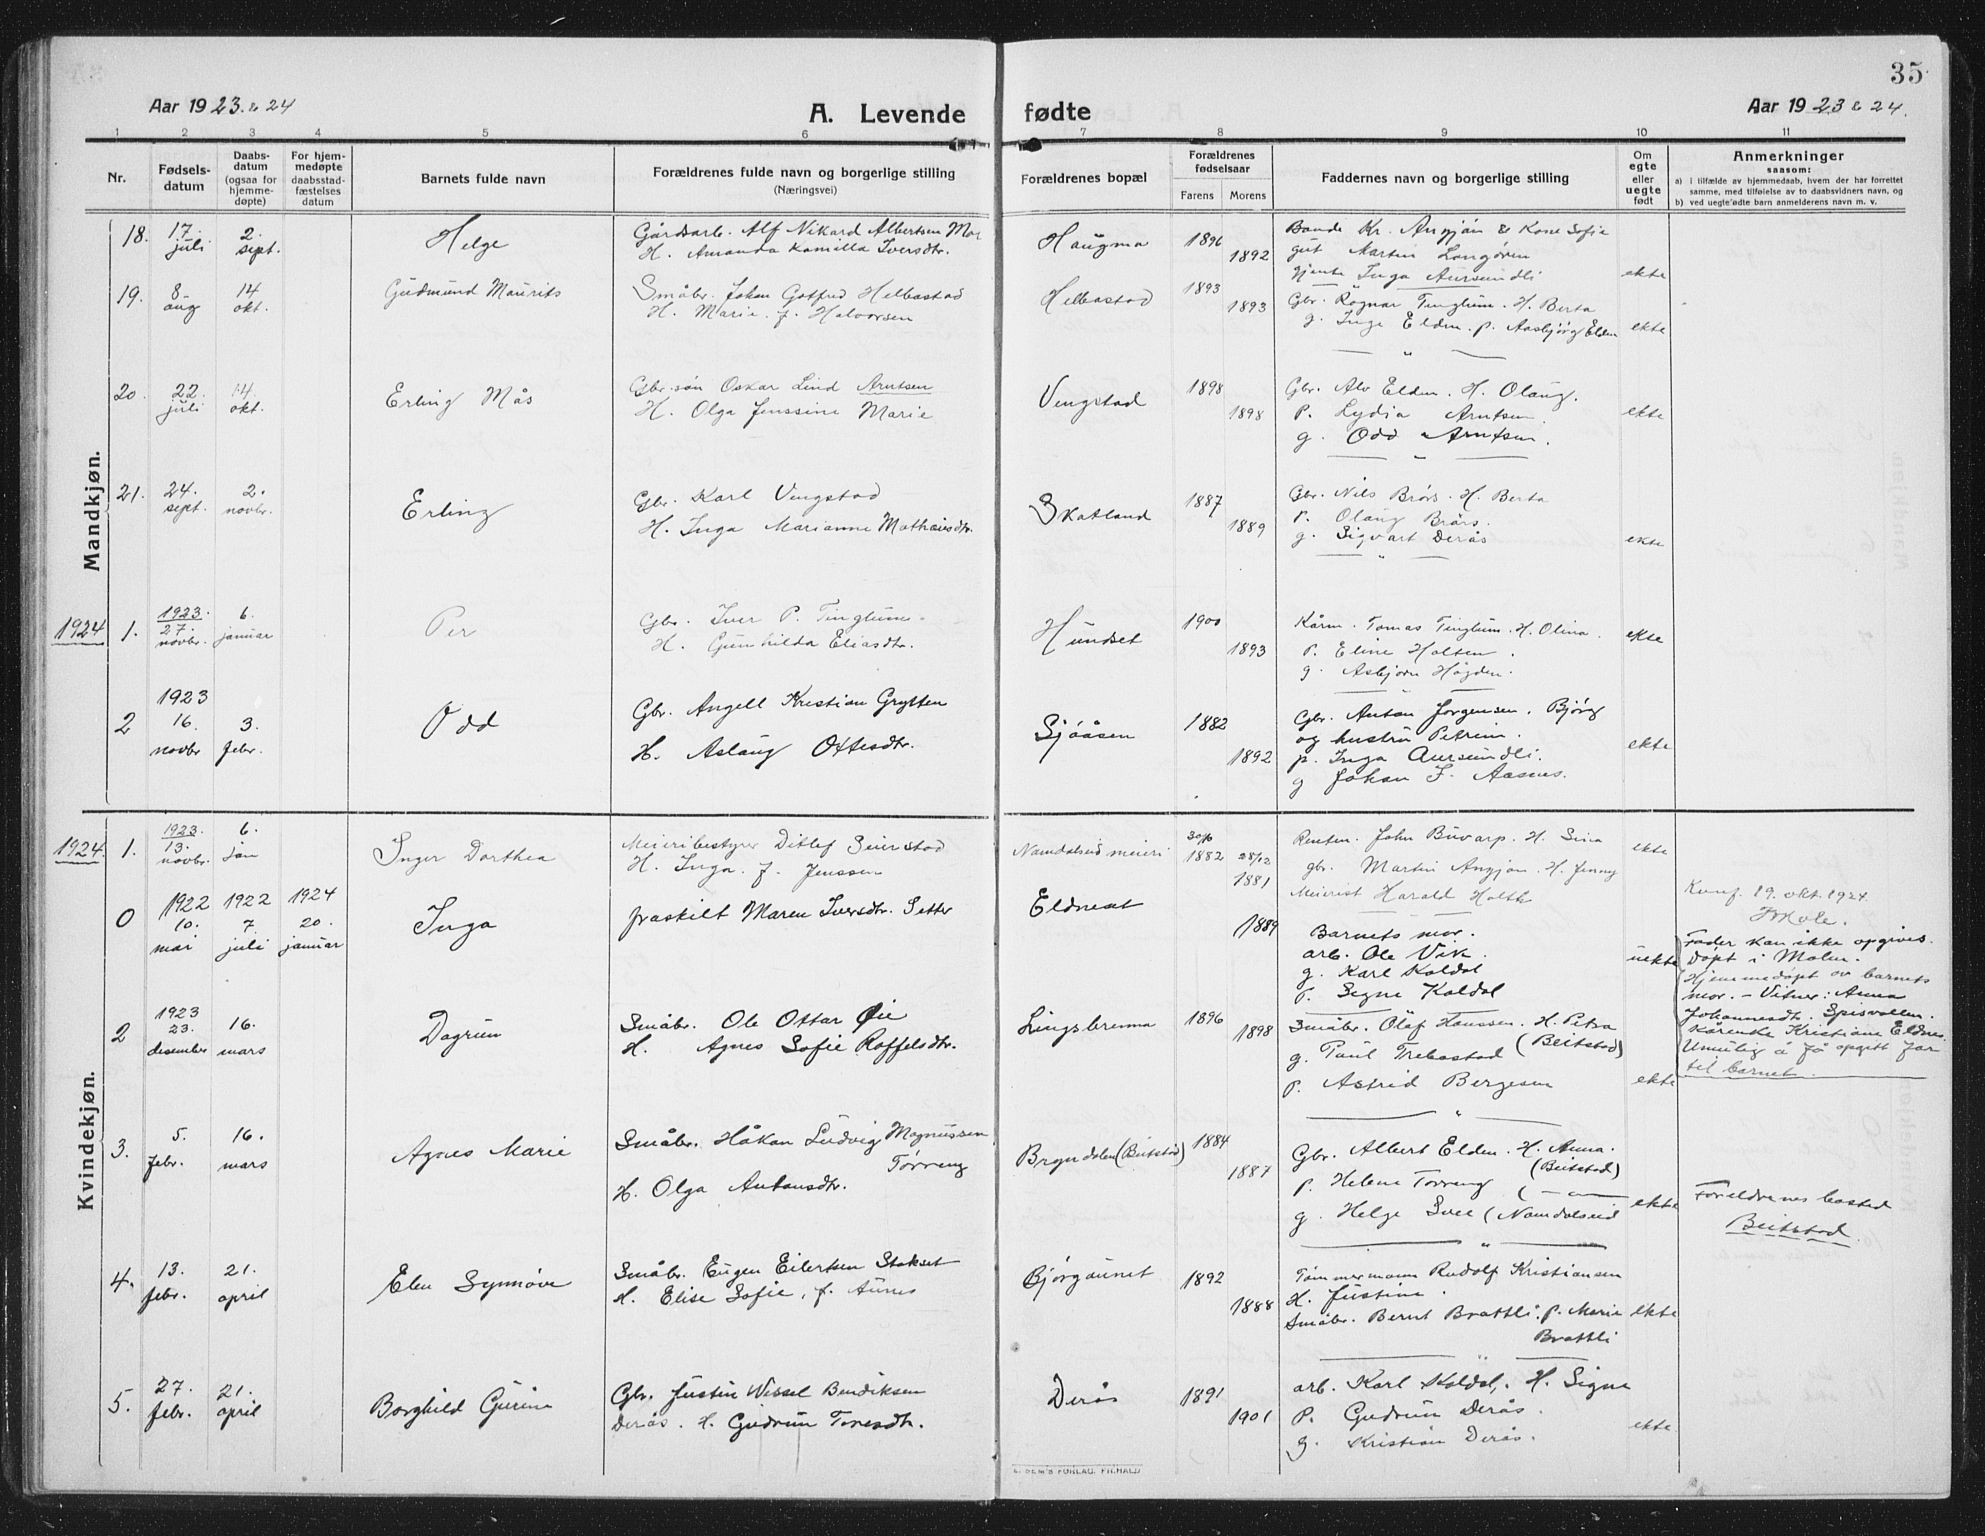 35
Aar 1923 & 24
A. Levende fødte
Aar 1923 & 24.
1 2 3 4 5 6 7 8 9 10 11
Nr.
Fødsels-
datum
Daabs-
datum
(ogsaa for
hjemme-
døpte)
For hjem-
medøpte
daabsstad-
fæstelses
datum
Barnets fulde navn
Forældrenes fulde navn og borgerlige stilling
(Næringsvei)
Forældrenes bopæl
Forældrenes
fødselsaar
Farens Morens
Faddernes navn og borgerlige stilling
Om
egte
eller
uegte
født
Anmerkninger
saasom:
a) i tilfælde av hjemmedaab, hvem der har forrettet
samme, med tilføielse av to daabsvidners navn, og
b) ved uegte fødte barn anmelderens navn m. v.
Mandkjøn.
18. 17. juli 2. sept. Helge
Gårdsarb. Alf Nikard Albertsen
H. Amanda Kamilla Iversdtr.
Haugma 1896 1892
Bonde Kr. Angjón & Kone Sofie
gut Martin
gjente Inga Aursundli ekte
19. 8 aug 14 okt. Gudmund Maurits
Småbr. Johan Gotfred Helbostad
H. Marie f. Halvorsen
Helbostad 1893 1893
Gbr. Ragnar Tinglum. H. Berta
g. Inge Elden. p. Aasbjørg Elden ekte
20. 22. juli 14. okt. Erling Mås
Gbr. søn Oskar Lind Arntsen
H. Olga Jenssine Marie
Vengstad 1898 1898
Gbr. Alv Elden. H. Olaug.
p. Lydia Arntsen
g. Odd Arntsen. ekte
21. 24. sept. 2. novbr. Erling
Gbr. Karl Vengstad
H. Inga Marianne Mathæisdtr.
Skatland 1887 1889
Gbr. Nils Brørs. H. Berta
p. Olaug Brørs.
g. Sigvart Derås ekte
1924 1. 1923 27. novbr. 6. januar Per
Gbr. Iver P. Tinglum
H. Gunhilda Eliasdtr.
Hundset 1900 1893
Kårm. Tomas Tinglum. H. Olina. ekte
p. Eline Holten.
g. Asbjørn Høgden.
2 1923 16. novbr 3. febr. Odd
Gbr. Angell Kristian Grytten
H. Aslaug Ottesdtr.
Sjøåsen 1882 1892
Gbr. Anton Jorgensen. Bjørg
og hustru Petrine.
p. Inga Aursundli.
g Johan F. Aasnes. ekte
Kvindekjøn.
1924. 1. 1923. 13. novbr. 6. jan Inger Dorthea
Meieribestyrer Ditlef Seierstad
H. Inga. f. Jenssen
Namdalseid meieri 30/6 1882 28/12 1881
Renten. John Buvarp. H. Sina
gbr. Martin Angjón. H. Jenny
Meierist Harald Holth ekte
0 1922 10. mai 1922 7. juli 1924 20. januar Inga
fraskilt Maren Iversdtr. Setter
Eldneset 1889
Barnets mor.
arb. Ole Vik.
g. Karl Koldal
p. Signe Koldal uekte
Konf. 19. okt. 1924.
Fader kan ikke opgives.
Døpt i Malm.
Hjemmedøpt av barnets
mor. – Vitner: Anna
Johannesdt. Spisvollen.
Kårenke Kristiane Eldnes.
Umulig å få opgitt far
til barnet.
2 1923 23. desember 16. mars Dagrun
Småbr. Ole Ottar Øie
H. Agnes Sofie Roffelsdtr.
Lingsbrenna 1896 1898
Småbr. Olaf Hanssen. H. Petra
g. Paul Trebostad (Beitstad)
p. Astrid Bergesen ekte
3. 5. febr. 16. mars Agnes Marie
Småbr. Håkon Ludvig Magnussen
Tørreng
H. Olga Antonsdtr.
Bryndalen (Beitstad) 1884 1887
Gbr. Albert Elden. H. Anna.
(Beitstad)
p. Helene Tørreng ( — " —
g. Helge Sve (Namdalseid ekte
Foreldrenes bosted
Beitstad.
4. 13. febr. 21. april Elen Synnøve
Småbr. Eugen Eilertsen Stokset
H. Elise Sofie, f. Aunes
Bjørgaunet 1892 1888
Tømmermann Rudolf Kristiansen
H. Justine.
Småbr. Bernt Brattli. p. Marie ekte
Brattli
5. 27. febr. 21. april Borghild Gurine
Gbr. Justin Wessel Bendiksen
Derås. H. Gudrun Toresdtr.
Derås 1891 1901
arb. Karl Koldal. H. Signe
p. Gudrun Derås.
g. Kristian Derås. ekte
E. SEM'S FORLAG, FR.HALD